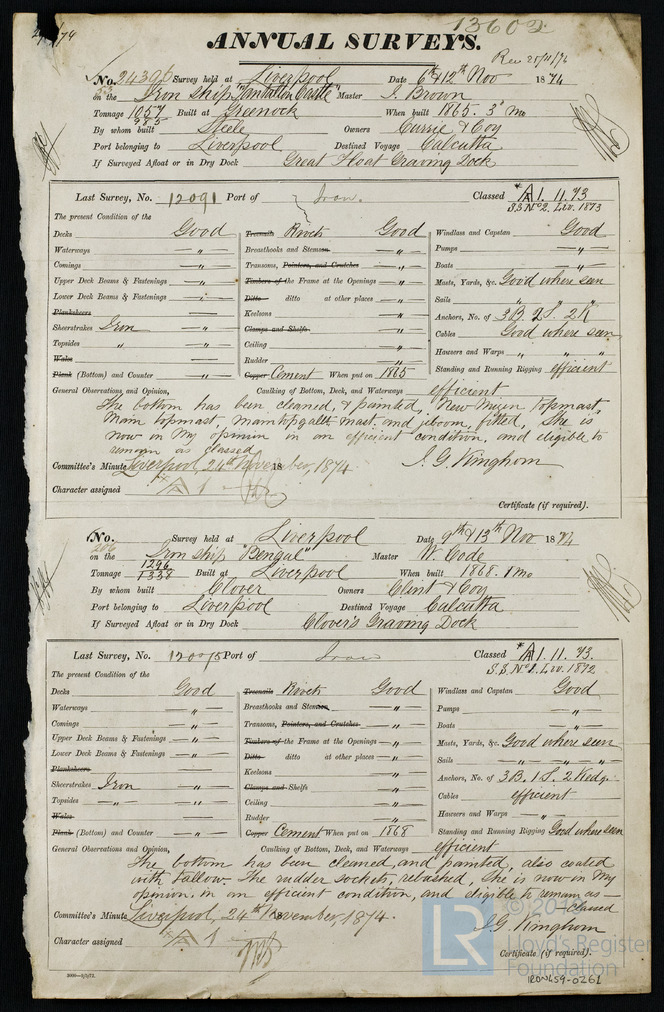 13602
ANNUAL SURVEYS.
Rec 25/11/74
No. 24396 Survey held at Liverpool Date 6th & 12th Nov 1874
on the Iron Ship "Tantallon Castle" Master J. Brown
Tonnage 1057 / 985 Built at Greenock When built 1865. 3d Mo
By whom built Steele Owners Currie & Coy
Port belonging to Liverpool Destined Voyage Calcutta
If Surveyed Afloat or in Dry Dock Great Float Graving Dock
Last Survey, No. 12091 Port of Iron. Classed *A1. 11.73
S.S. No 2. Liv. 1873
The present Condition of the
Decks Good Treenails Rivets Good Windlass and Capstan Good
Waterways " Breasthooks and Stemson " Pumps "
Comings " Transoms, Pointers, and Crutches " Boats "
Upper Deck Beams & Fastenings " Timbers of the Frame at the Openings " Masts, Yards, &c. Good where seen
Lower Deck Beams & Fastenings " Ditto ditto at other places " Sails " " "
Planksheers Keelsons " Anchors, No. of 3B 2S 2K
Sheerstrakes Iron Clamps and Shelfs " Cables Good where seen
Topsides " Ceiling " Hawsers and Warps " " "
Wales Rudder " Standing and Running Rigging efficient
Plank (Bottom) and Counter " Copper Cement When put on 1865
General Observations and Opinion, Caulking of Bottom, Deck, and Waterways efficient
The bottom has been cleaned, & painted, New Mizen topmast,
Main topmast, maintopgallt mast and jiboom, fitted, She is
now in my opinion in an efficient condition, and eligible to
remain as classed
J. G. Kinghorn
Committee's Minute Liverpool, 24th November, 1874
Character assigned A 1
Certificate (if required).
No. 206 Survey held at Liverpool Date 9th & 13th Nov 1874
on the Iron Ship "Bengal" Master W. Code
Tonnage 1296 / 1338 Built at Liverpool When built 1868. 1 Mo
By whom built Clover Owners Clint & Coy
Port belonging to Liverpool Destined Voyage Calcutta
If Surveyed Afloat or in Dry Dock Clover's Graving Dock
Last Survey, No. 12005 Port of Iron Classed *A1. 11. 73.
S.S. No 1. Liv. 1872
The present Condition of the
Decks Good Treenails Rivets Good Windlass and Capstan Good
Waterways " Breasthooks and Stemson " Pumps "
Comings " Transoms, Pointers, and Crutches " Boats "
Upper Deck Beams & Fastenings " Timbers of the Frame at the Openings " Masts, Yards, &c. Good where seen
Lower Deck Beams & Fastenings " Ditto ditto at other places " Sails " " "
Planksheers Keelsons " Anchors, No. of 3B. 1S. 2 Kedg.
Sheerstrakes Iron Clamps and Shelfs " Cables efficient
Topsides " Ceiling " Hawsers and Warps "
Wales Rudder " Standing and Running Rigging Good where seen
Plank (Bottom) and Counter " Copper Cement When put on 1868
General Observations and Opinion, Caulking of Bottom, Deck, and Waterways efficient
The bottom has been cleaned, and painted, also coated
with Tallow. The rudder sockets, rebushed, She is now in my
opinion, in an efficient condition, and eligible to remain as
classed
J.G. Kinghorn
Committee's Minute Liverpool, 24th November, 1874.
Character assigned A 1
Certificate (if required).
LR
Lloyd's Register
Foundation
IRON459-0261